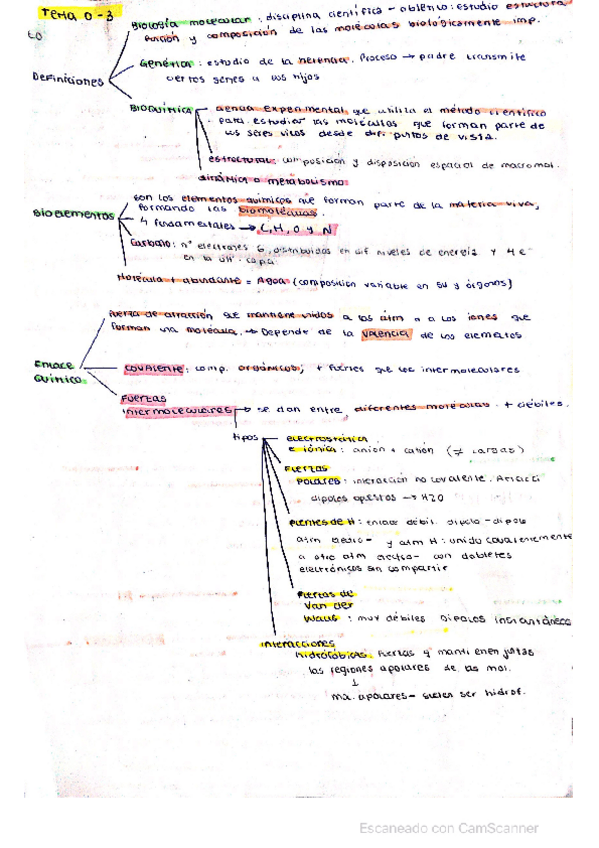 Tema 0-3
Biología molecular: disciplina científica - objetivo: estudio estructura
función y composición de las moléculas biológicamente imp.
Definiciones
Genética: estudio de la herencia. Proceso → padre transmite
ciertos genes a los hijos
Bioquímica
ciencia experimental que utiliza el método científico
para estudiar las moléculas que forman parte de
los seres vivos desde dif. puntos de vista.
estructural: composición y disposición espacial de macromol.
dinámica o metabolismo
son los elementos químicos que forman parte de la materia viva,
formando las biomoléculas.
Bioelementos
4 fundamentales → C, H, O y N
Carbono: nº electrones 6, distribuidos en dif niveles de energía y 4 e-
en la últ. capa
Molécula + abundante = Agua (composición variable en su y órganos)
Fuerza de atracción que mantiene unidos a los átm o a los iones que
forman una molécula. → Depende de la valencia de los elementos
Enlace
Químico
covalente: comp. orgánicos; + fuertes que los intermoleculares
Fuerzas
intermoleculares → se dan entre diferentes moléculas. + débiles.
tipos
electrostática
e iónica: anión + catión (≠ cargas)
Fuerzas
polares: interacción no covalente. Atracci
dipolos opuestos → H2O
puentes de H: enlace débil. dipolo-dipolo
átm electro- y átm H: unido covalentemente
a otro átm electro- con dobletes
electrónicos sin compartir
Fuerzas de
Van der
Waals: muy débiles Dipolos instantáneos
Interacciones
hidrofóbicas: fuerzas q mantienen juntas
las regiones apolares de las mol.
↓
apolares- suelen ser hidrof.
Escaneado con CamScanner